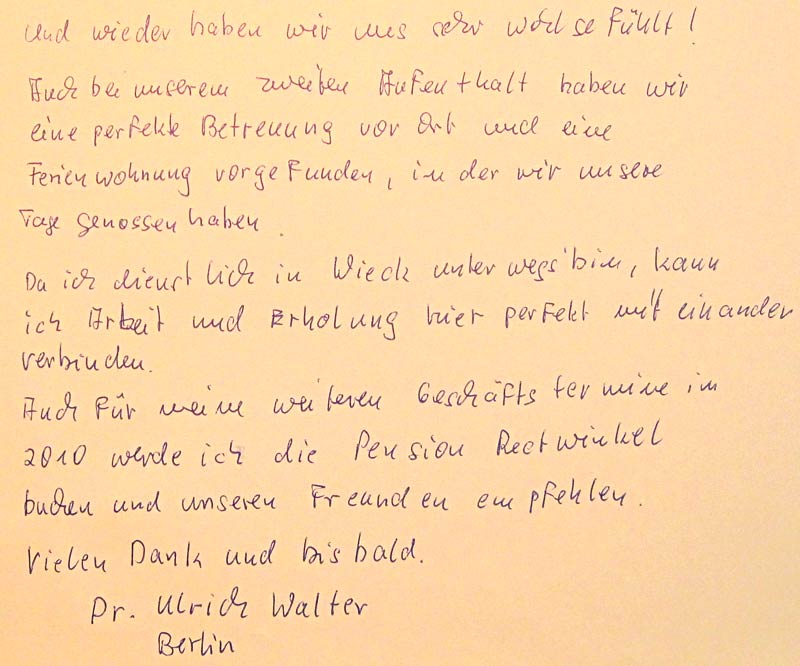 Und wieder haben wir uns sehr wohl gefühlt!
Auch bei unserem zweiten Aufenthalt haben wir
eine perfekte Betreuung vor Ort und eine
Ferienwohnung vorgefunden, in der wir unsere
Tage genossen haben.
Da ich dienstlich in Wieck unterwegs bin, kann
ich Arbeit und Erholung hier perfekt miteinander
verbinden.
Auch für meine weiteren Geschäftstermine im
2010 werde ich die Pension Reetwinkel
buchen und unseren Freunden empfehlen.
Vielen Dank und bis bald.
Dr. Ulrich Walter
Berlin